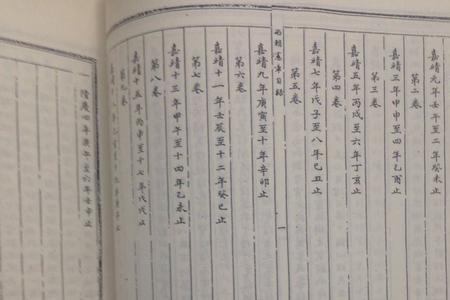 嘉靖元年壬午至二年癸未止
第二卷
嘉靖三年甲申至四年乙酉止
第三卷
嘉靖五年丙戌至六年丁亥止
第四卷
嘉靖七年戊子至八年己丑止
第五卷
兩朝憲章目錄 一
嘉靖九年庚寅至十年辛卯止
第六卷
嘉靖十一年壬辰至十二年癸巳止
第七卷
嘉靖十三年甲午至十四年乙未止
第八卷
嘉靖十五年丙申至十七年戊戌止
第九卷
隆慶四年庚午至六年壬申止